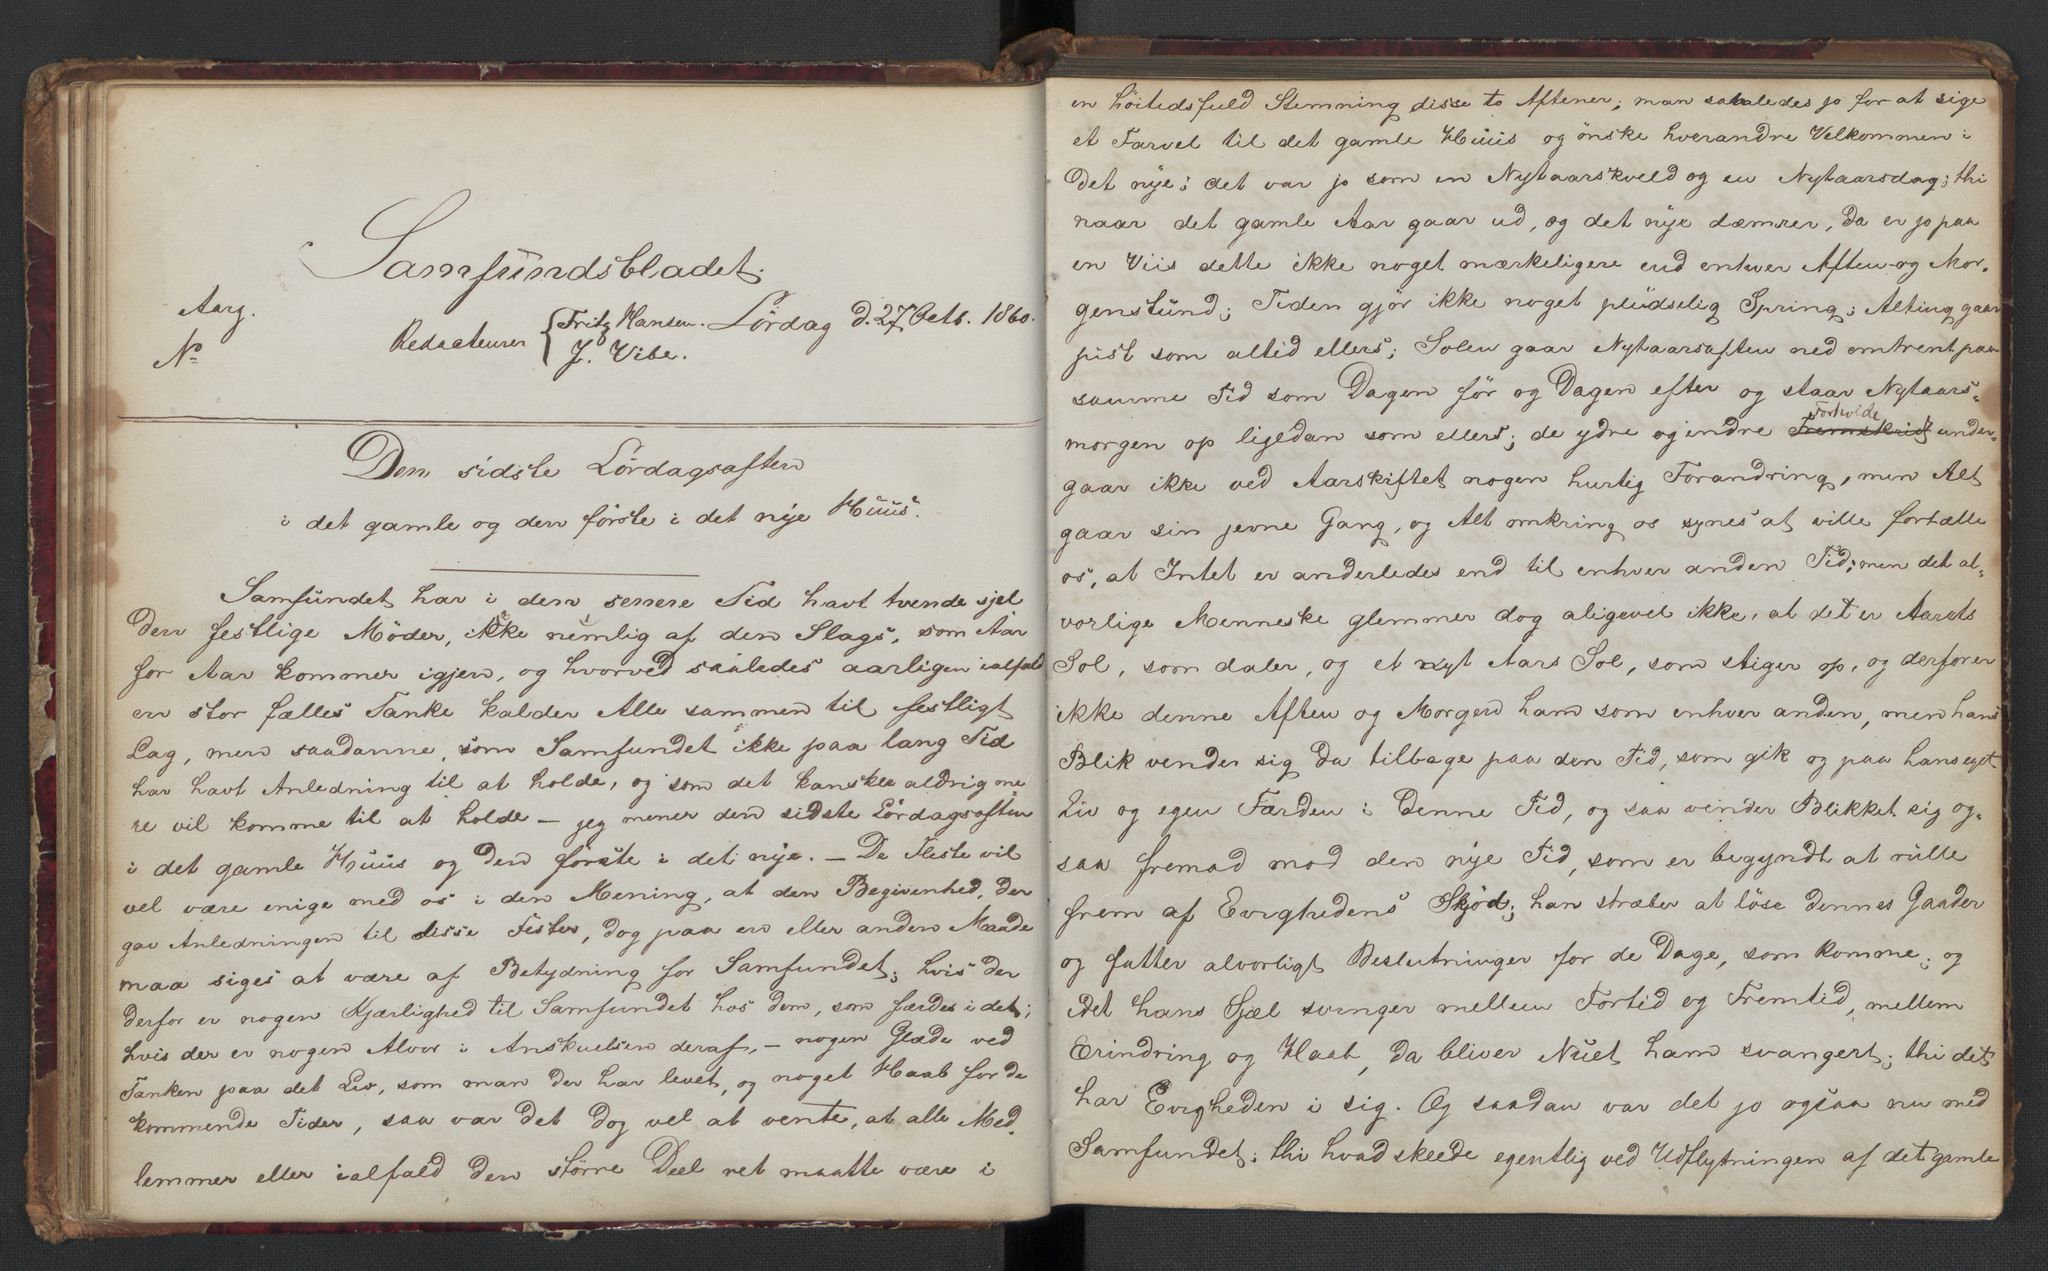 Samfundsbladet.
Aarg.
No
Redacteurer { Fritz Hansen. J. Vibe. Lördag d. 27 Octb. 1860.
Den sidste Lördagsaften
i det gamle og den förste i det nye Huus.
Samfundet har i den senere Tid havt tvende sjel
den festlige Möder, ikke nemlig af den Slags, som Aar
for Aar kommer igjen, og hvorved saaledes aarligen ialfald
en stor fælles Tanke kalder Alle sammen til festligt
Lag, men saadanne, som Samfundet ikke paa lang Tid
har havt Anledning til at holde, og som det kanskee aldrig me
re vil komme til at holde – jeg mener den sidste Lördagsaften
i det gamle Huus og den förste i det nye. – De Fleste vil
vel være enige med os i den Mening, at den Begivenhed, der
gav Anledningen til disse Fester, dog paa en eller anden Maade
maa siges at være af Betydning for Samfundet; hvis der
derfor er nogen Kjærlighed til Samfundet hos dem, som færdes i det;
hvis der er nogen Alvor i Anskuelsen deraf, – nogen Glæde ved
Tanken paa det Liv, som man der har levet, og noget Haab for de
kommende Tider, saa var det dog vel at vente, at alle Med
lemmer eller ialfald den större Deel ret maatte være i
en höitedsfuld Stemning disse to Aftener; man samledes jo for at sige
et Farvel til det gamle Huus og önske hverandre Velkommen i
det nye; det var jo som en Nytaarskveld og en Nytaarsdag; thi
naar det gamle Aar gaar ud, og det nye dæmrer, da er jo paa
en Viis dette ikke noget mærkeligere end enhver Aften- og Mor-
genstund; Tiden gjör ikke noget pludselig Spring; Alting gaar
just som altid ellers; Solen gaar Nytaarsaften ned omtrent paa
samme Tid som Dagen för og Dagen efter og staar Nytaars-
morgen op ligedan som ellers; de ydre og indre Fremskridt Forholde under-
gaar ikke ved Aarskiftet nogen hurtig Forandring, men Alt
gaar sin jevne Gang, og Alt omkring os synes at ville fortælle
os, at Intet er anderledes end til enhver anden Tid; men det al-
vorlige Menneske glemmer dog aligevel ikke, at det er Aarets
Sol, som daler, og et nyt Aars Sol, som stiger op, og derfor er
ikke denne Aften og Morgen ham som enhver anden, men hans
Blik vender sig da tilbage paa den Tid, som gik og paa hans eget
Liv og egen Færden i denne Tid, og saa vender Blikket sig og-
saa fremad mod den nye Tid, som er begyndt at rulle
frem af Evighedens Skjöd; han stræber at löse dennes Gaader
og fatter alvorligt Beslutninger for de Dage, som komme; og
idet hans Sjæl svinger mellem Fortid og Fremtid, mellem
Erindring og Haab, da bliver Nuet ham svangert; thi det
har Evigheden i sig. Og saadan var det jo ogsaa nu med
Samfundet; thi hvad skeede egentlig ved Udflytningen af det gamle